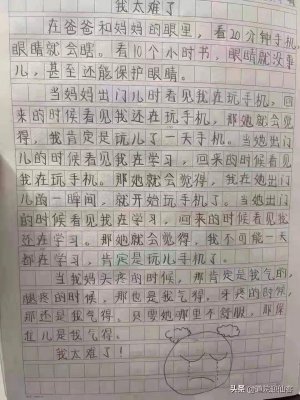 我太难了
在爸爸和妈妈的眼里，看20分钟手机，
眼睛就会瞎。看10个小时书，眼睛就没事
儿，甚至还能保护眼睛。
当妈妈出门儿时看见我在玩手机，回
来的时候看见我还在玩手机，那她就会觉
得，我肯定是玩儿了一天手机。当她出门
儿的时候看见我在学习，回来的时候看见
我在玩手机。那她就会觉得，我在她出门
儿的一瞬间，就开始玩手机了。当她出门
的时候看见我在学习，回来的时候看见我
还在学习。那她就会觉得，我不可能一天
都在学习，肯定是玩儿手机了。
当我妈头疼的时候，那肯定是我气的，
腿疼的时候，那也是我气得，牙疼的时候，
那还是我气得。只要她哪里不舒服，那保
准儿是我气得。
我太难了！
头条